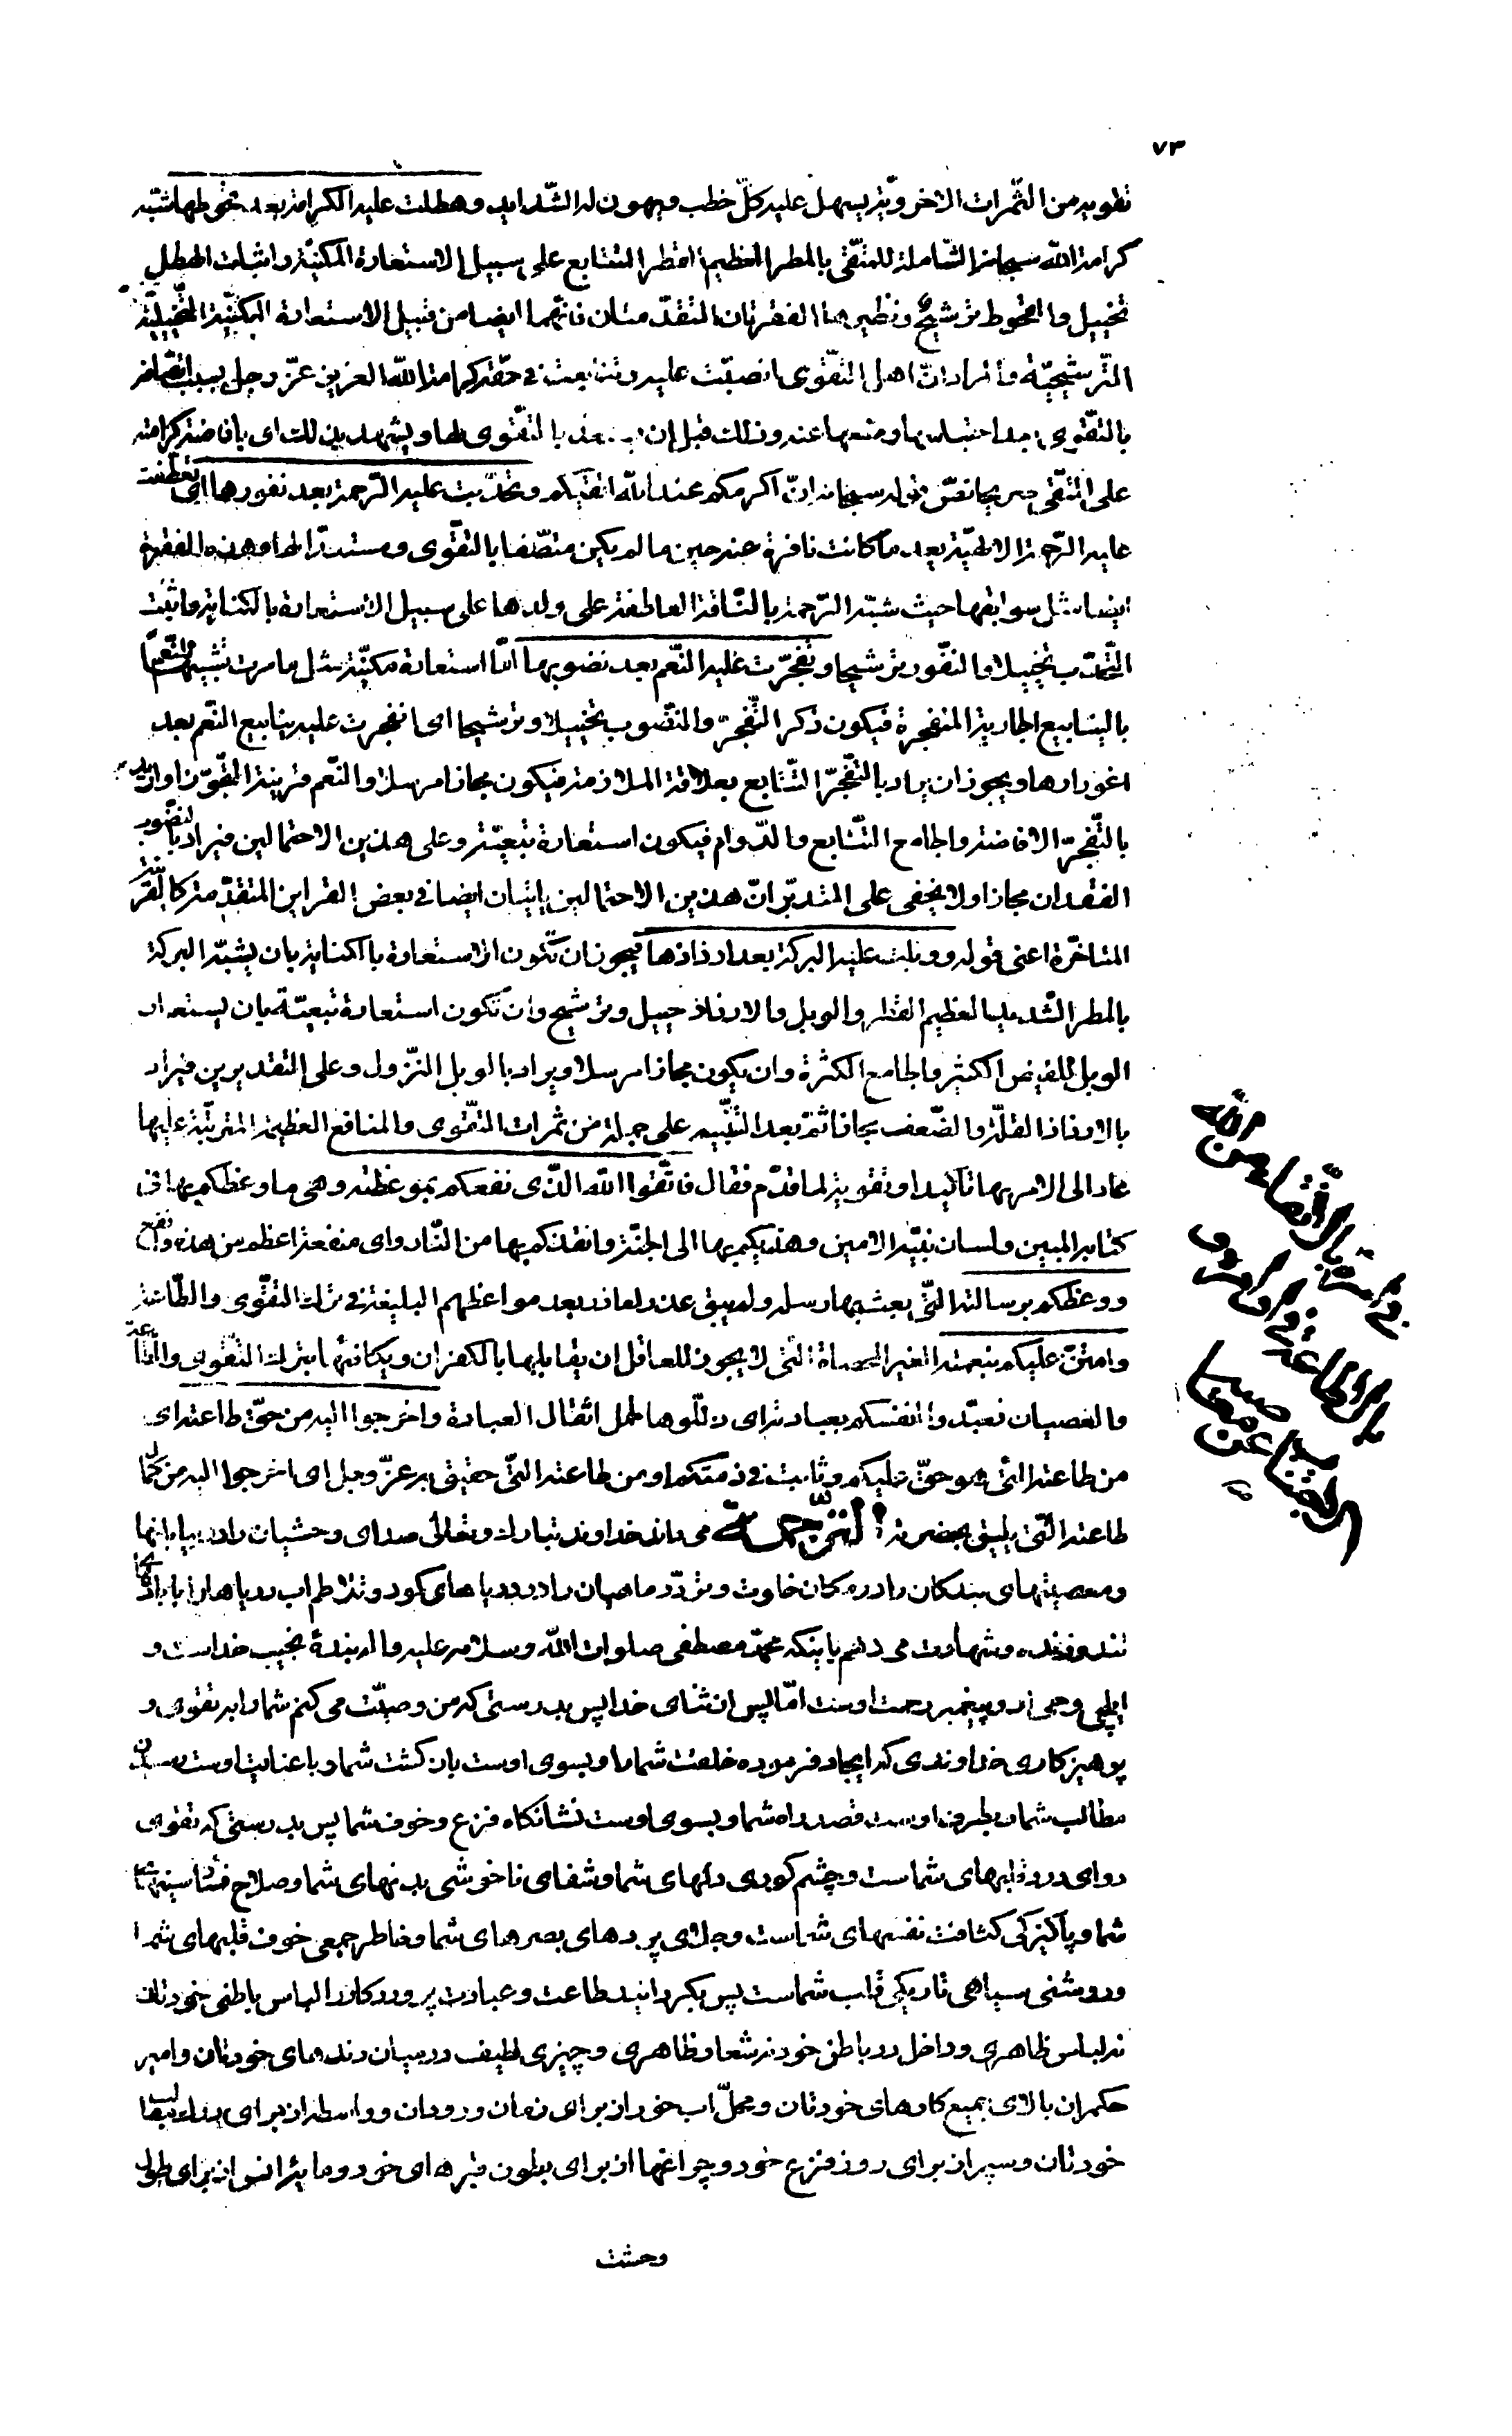 ٧٣
تطويه من الثّمرات الاخرويّة يسهل عليه كلّ خطب ويهون له الشّدايد وهطلت عليه الكرامة بعد قحوطها شبّه
كرامة اللّه سبحانه الشّاملة للمتّقى بالمطر العظيم القطر المتتابع على سبيل الاستعارة المكنيّة واثبات الهطل
تخييل والقحوط ترشيح ونظيرها الفقرتان المتقدّمتان فانّهما ايضا من قبيل الاستعارة المكنيّة التخييليّة
الترشيحيّة والمراد انّ اهل التّقوى انصبّت عليه وتتابعت في حقّه كرامة اللّه العزيز عزّ وجل بسبب اتّصافه
بالتّقوى بعد احتباسها ومنعها عنه وذلك قبل ان يستعد بالتّقوى لها ويشهد بذلك اى بافاضة كرامته
على المتّقى صريحا نصّ قوله سبحانه انّ اكرمكم عند اللّه اتقيكم وتحدّبت عليه الرّحمة بعد نفورها اى تعطّفت
عليه الرّحمة الالهيّة بعد ما كانت نافرة عنه حين ما لم يكن متصّفا بالتّقوى ومستعدّا لها وهذه الفقرة
ايضا مثل سوابقها حيث شبّه الرّحمة بالنّاقة العاطفة على ولدها على سبيل الاستعارة بالكناية واثبت
التّحدّب تخييلا والنّفور ترشيحا وتفجّرت عليه النّعم بعد نضوبها امّا استعارة مكنيّة مثل ما مرّت تشبيها للنّعم
بالينابيع الجارية المنفجرة فيكون ذكر التّفجّر والنّضوب تخييلا وترشيحا اى انفجرت عليه ينابيع النّعم بعد
اغورارها ويجوز ان يراد بالتّفجّر التّتابع بعلاقة الملازمة فيكون مجازا مرسلا والنّعم قرينة التجوّز او ان يراد
بالتّفجّر الافاضة والجامع التّتابع والدّوام فيكون استعارة تبعيّة وعلى هذين الاحتمالين فيراد بالنّضوب
الفقدان مجازا ولا يخفى على المتدبّر انّ هذين الاحتمالين ياتيان ايضا في بعض القراين المتقدّمة كالقرينة
المتاخّرة اعنى قوله ووبلت عليه البركة بعد ارذاذها فيجوز ان تكون الاستعارة بالكناية بان يشبّه البركة
بالمطر الشّديد العظيم القطر والوبل والارذاذ تخييل وترشيح وان تكون استعارة تبعيّة بان يستعار
الوبل للفيض الكثير والجامع الكثرة وان يكون مجازا مرسلا ويراد بالوبل النّزول وعلى التقديرين فيراد
بالارذاذ القلّة والضّعف مجازا ثمّ بعد التنّبيه على جملة من ثمرات التّقوى والمنافع العظيمة المترتّبة عليها
عاد الى الامر بها تاكيدا وتقوية لما قدّم فقال فاتّقوا اللّه الّذى نفعكم بموعظته وهى ما وعظكم بها في
كتابه المبين ولسان نبيّه الامين وهديكم بها الى الجنّة وانقذكم بها من النّار واى منفعة اعظم من هذه وانفع
ووعظكم برسالته الّتى بعث بها رسله ولم يبق عذر لعاذر بعد مواعظهم البليغة في ترك التّقوى والطّاعة
وامتنّ عليكم بنعمته الغير المحصاة الّتى لا يجوز للعاقل ان يقابلها بالكفران ويكافئها بترك التّقوى والطّاعة
والعصيان فعبّدوا انفسكم بعبادته اى ذلّلوها لحمل اثقال العبادة واخرجوا اليه من حقّ طاعته اى
من طاعته الّتى هو حقّ عليكم وثابت في ذمّتكم او من طاعته الّتى حقيق به عزّ وجل اى اخرجوا اليه من كمال
طاعته الّتى يليق بحضرته التّرجمة مى داند خداوند تبارك وتعالى صداى وحشيان را در بيابانها
ومعصيتهاى بندكان را در مكان خلوت وتردّد ماهيان را در درياهاى كود وتلاطم اب درياها را با بادهاى
تند وزنده وشهادت مى دهم باينكه محمّد مصطفى صلوات اللّه وسلامه عليه واله بندهٔ نجيب خداست و
ايلچى وحى او وپيغمبر رحمت اوست امّا پس از ثناى خدا پس بدرستى كه من وصيّت مى كنم شما را به تقوى و
پرهيزكارى خداوندى كه ايجاد فرموده خلقت شما را وبسوى اوست بازكشت شما وبا عنايت اوست رسيدن
مطالب شما وبطرف اوست قصد راه شما وبسوى اوست نشانكاه فزع وخوف شما پس بدرستى كه تقوى
دواى درد قلبهاى شماست وچشم كورى دلهاى شما وشفاى ناخوشى بدنهاى شما وصلاح فساد سينهاى
شما وپاكيزكى كثافت نفسهاى شماست وجلاى پردهاى بصرهاى شما وخاطر جمعى خوف قلبهاى شما
وروشنى سياهى تاريكى قلب شماست پس بكردانيد طاعت وعبادت پروردكار را لباس باطنى خودتان
نه لباس ظاهرى وداخل در باطن خود نه شعار ظاهرى وچيزى لطيف در ميان دندهاى خودتان وامير
حكمران بالاى جميع كارهاى خودتان ومحلّ اب خور از براى زمان ورودتان وواسطه از براى
خودتان وسپر از براى روز فزع خود وچراغها از براى بطون قبرهاى خود ومايهٔ انس از براى طول
وحشت